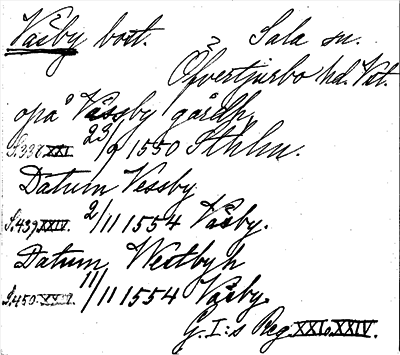 Väsby bost. Sala sn.
Öfvertjurbo hd. Vstm.
opå Vässby gårdh,
S.338 XXI. 23/9 1550 Sthlm.
Datum Vessby
S.439 XXIV. 2/11 1554 Väsby.
Datum Westbyh
S.450. 11/11 1554 Väsby.
G.I:s Reg. XXI o. XXIV.